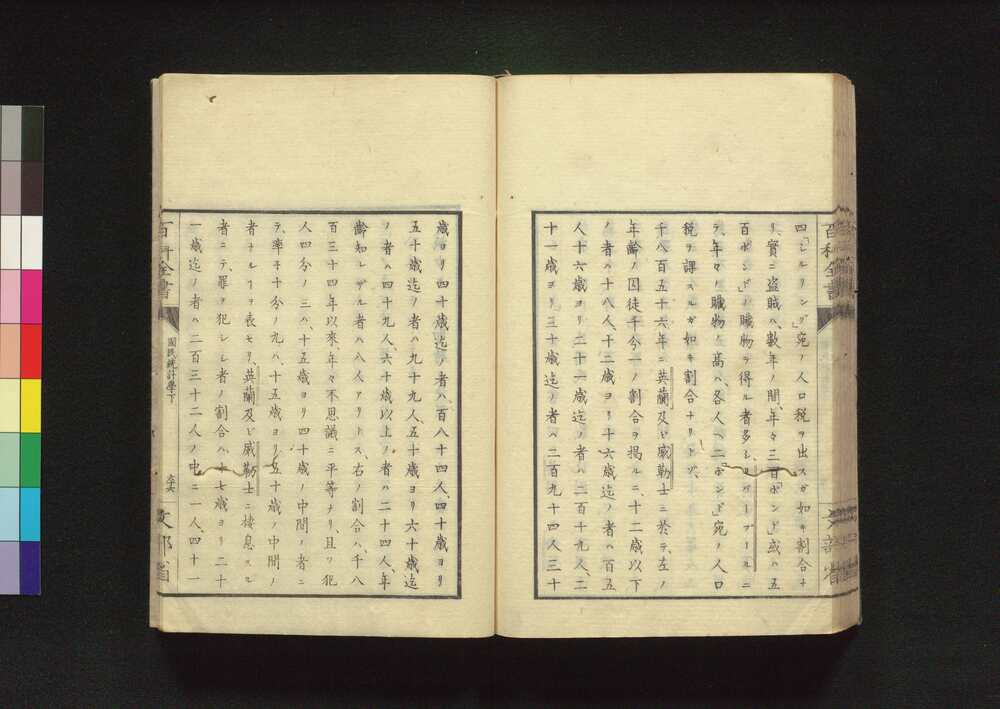 四「シルリング」宛ノ人口税ヲ出スガ如キ割合ナ
リ、實ニ盗賊ハ、數年ノ間、年々三百「ポンド」或ハ五
百「ポンド」ノ贓物ヲ得ル者多シ、リバープールニ
テ、年々ノ贓物ノ高ハ、各人ヘ二「ポンド」宛ノ人口
税ヲ課スルガ如キ割合ナリトゾ、
千八百五十六年ニ英蘭及ビ威勒士ニ於テ、左ノ
年齡ノ囚徒千分一ノ割合ヲ掲ルニ、十二歳以下
ノ者ハ十八人、十二歳ヨリ十六歳迄ノ者ハ百五
人十六歳ヨリ二十一歳迄ノ者ハ二百十九人、二
十一歳ヨリ三十歳迄ノ者ハ二百九十四人三十
歳ヨリ四十歳迄ノ者ハ百八十四人、四十歳ヨリ
五十歳迄ノ者ハ九十九人、五十歳ヨリ六十歳迄
ノ者ハ四十九人、六十歳以上ノ者ハ二十四人、年
齡知レザル者ハ八人アリトス、右ノ割合ハ、千八
百三十四年以來、年々不思議ニ平等ナリ、且ツ犯
人四分ノ三ハ、十五歳ヨリ四十歳ノ中間ノ者ニ
テ、率子十分ノ九ハ、十五歳ヨリ五十歳ノ中間ノ
者ナルヿヲ表セリ、英蘭及ビ威勒士ニ棲息スル
者ニテ、罪ヲ犯シヽ者ノ割合ハ、十七歳ヨリ二十
一歳迄ノ者ハ二百三十二人ノ中ニ一人、四十一
百科全書
國民統計學下
文部省